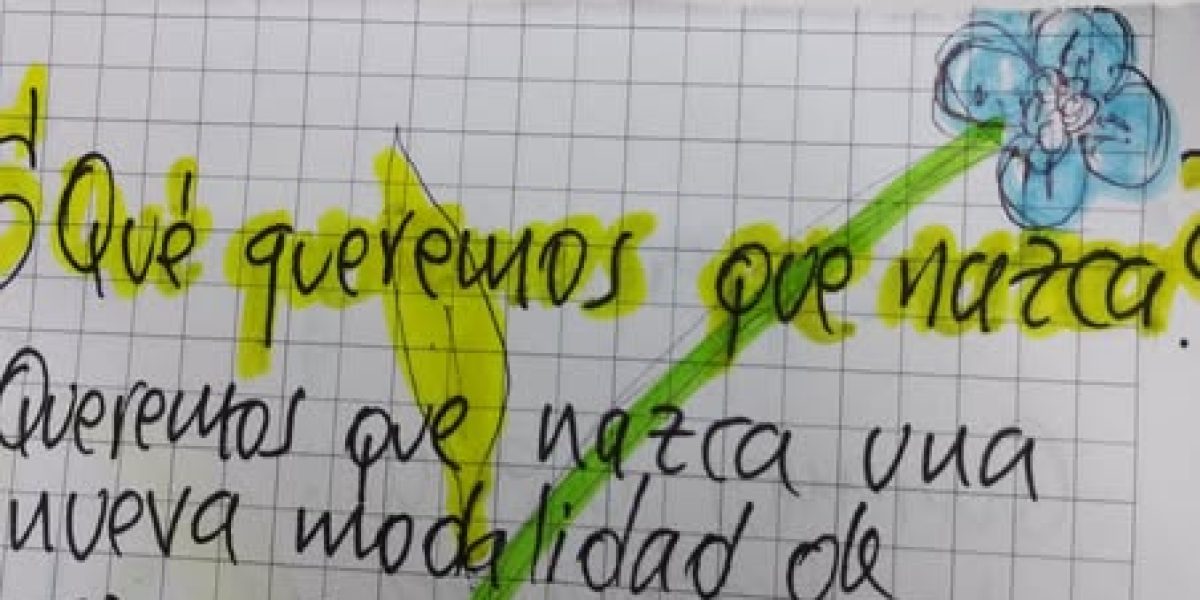 ¿Qué queremos que nazca?
Queremos que nazca una
nueva modalidad de